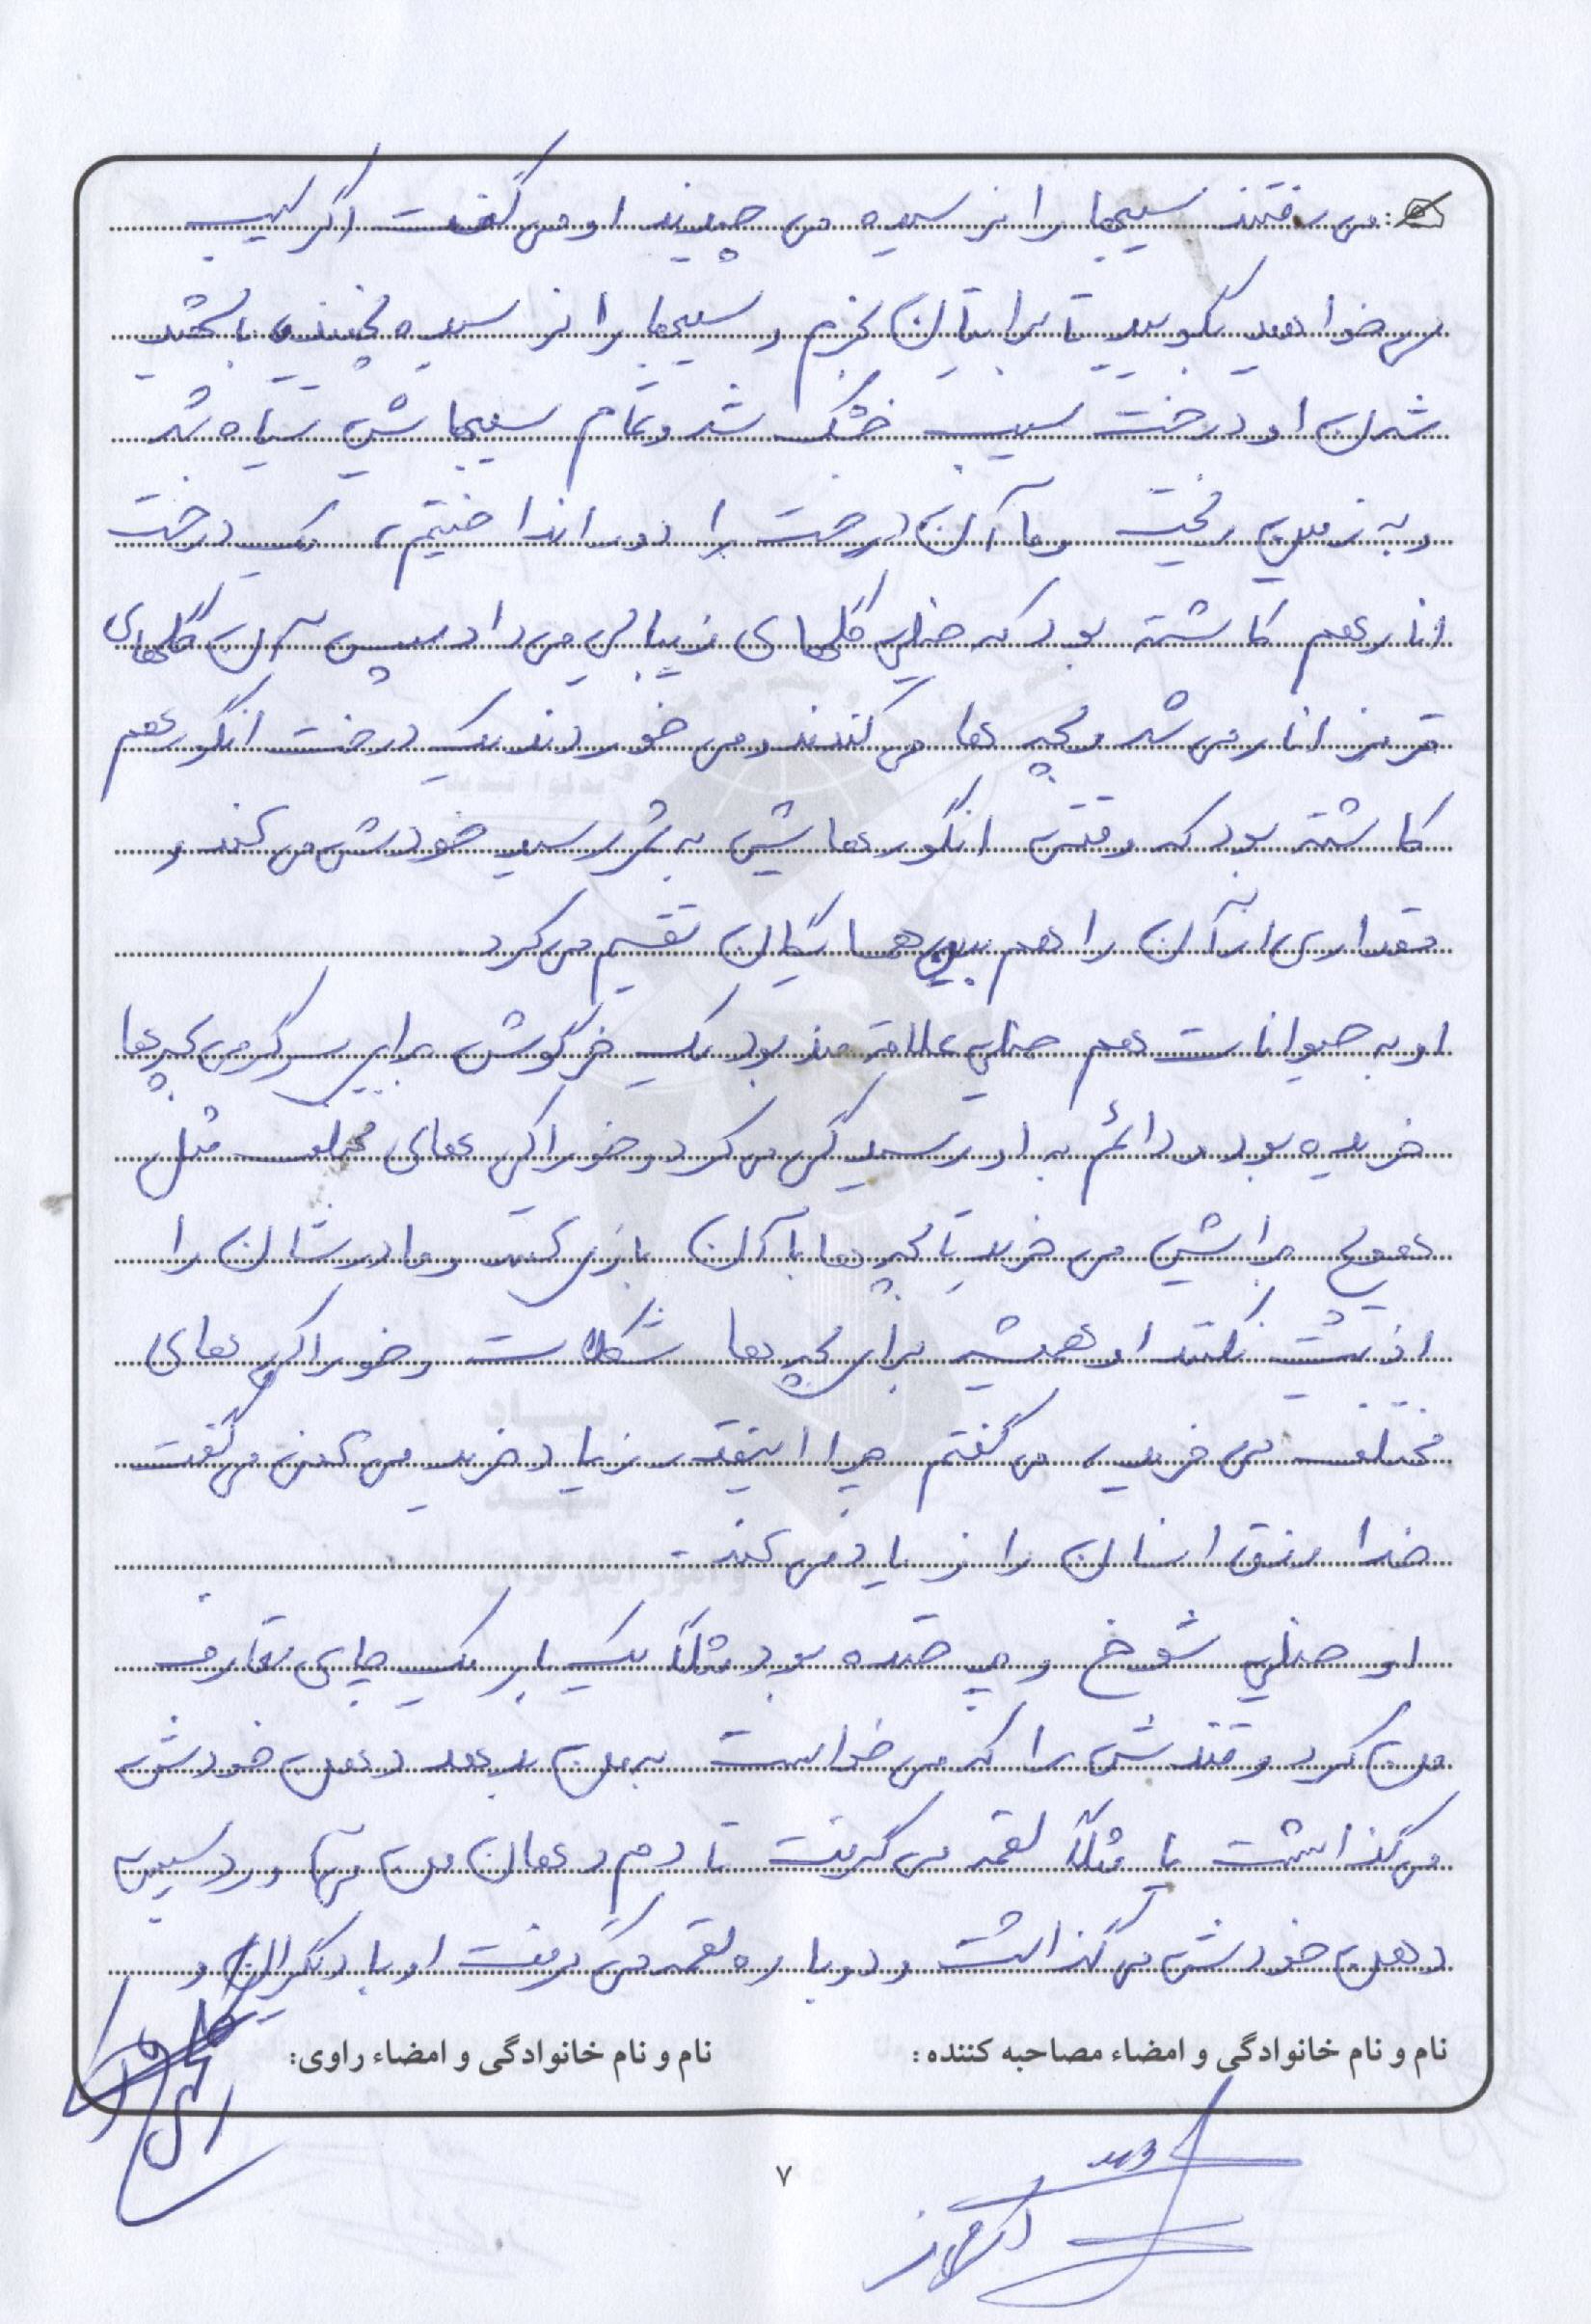 می رفتند سیبها را نرسیده می چیدند او می گفت اگر سیب
می خواهید بگویید تا برایتان بخرم و سیبها را نرسیده نچینید با شهید
شدن او درخت سیب خشک شد و تمام سیبهایش سیاه شد
و به زمین ریخت و ما آن درخت را دور انداختیم، یک درخت
انار هم کاشته بود که خیلی گلهای زیبایی می داد سپس آن گلهای
قرمز انار می شد و بچه ها می کندند و می خوردند یک درخت انگور هم
کاشته بود که وقتی انگورهایش به ثمر رسید خودش می کند و
مقداری از آن را هم بین همسایگان تقسیم می کرد.
او به حیوانات هم خیلی علاقه مند بود یک خرگوش برای سرگرمی بچه ها
خریده بود و دائم به او رسیدگی می کرد و خوراکی های مختلف مثل
هویج برایش می خرید تا بچه ها با آن بازی کنند و مادرشان را
اذیت نکنند او همیشه برای بچه ها شکلات و خوراکی های
مختلف می خرید، می گفتم چرا اینقدر زیاد خرید می کنی می گفت
خدا رزق انسان را زیاد می کند.
او خیلی شوخ و پر خنده بود مثلاً یک بار یک چای تعارف
من کرد و قندش را که می خواست به من بدهد دهن خودش
می گذاشت یا مثلاً لقمه می گرفت تا دم دهان من می آورد سپس
دهن خودش می گذاشت و دوباره لقمه می گرفت او با دیگران و
نام و نام خانوادگی و امضاء مصاحبه کننده:
نام و نام خانوادگی و امضاء راوی:
۷